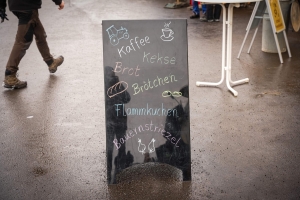 Kaffee
Kekse
Brot
Brötchen
Flammkuchen
Bauernstriezel